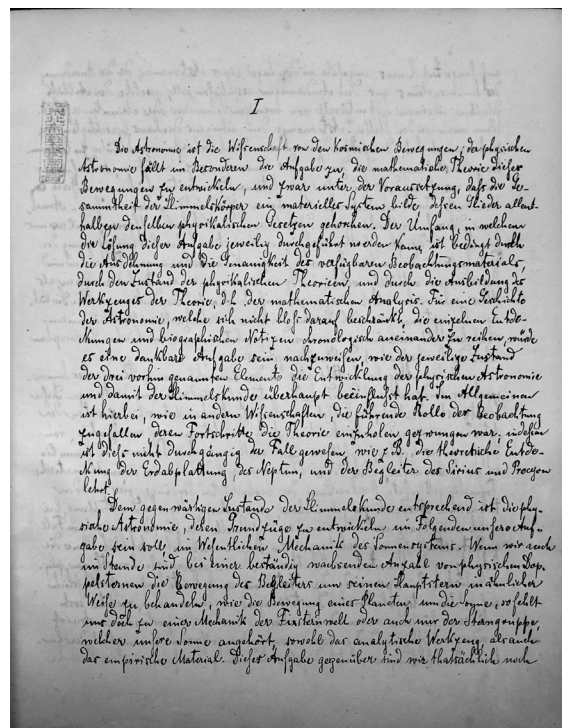 I
Die Astronomie ist die Wissenschaft von den kosmischen Bewegungen; der physischen
Astronomie fällt im Besonderen die Aufgabe zu, die mathematische Theorie dieser
Bewegungen zu entwickeln, und zwar unter der Voraussetzung, dass die Ge-
sammtheit der Himmelskörper ein materielles System bilde, dessen Glieder allent-
halben denselben physikalischen Gesetzen gehorchen. Der Umfang, in welchem
die Lösung dieser Aufgabe jeweilig durchgeführt werden kann, ist bedingt durch
die Ausdehnung und die Genauigkeit des verfügbaren Beobachtungsmaterials,
durch den Zustand der physikalischen Theorieen, und durch die Ausbildung des
Werkzeuges der Theorie, d.h. der mathematischen Analysis. Für eine Geschichte
der Astronomie, welche sich nicht bloss darauf beschränkt, die einzelnen Entde-
ckungen und biographischen Notizen chronologisch aneinander zu reihen, würde
es eine dankbare Aufgabe sein nachzuweisen, wie der jeweilige Zustand
der drei vorhin genannten Elemente die Entwicklung der physischen Astronomie
und damit der Himmelskunde überhaupt beeinflusst hat. Im Allgemeinen
ist hierbei, wie in andern Wissenschaften, die führende Rolle der Beobachtung
zugefallen, deren Fortschritte die Theorie einzuholen gezwungen war; indessen
ist diess nicht durchgängig der Fall gewesen, wie z.B. die theoretische Entde-
ckung der Erdabplattung, des Neptun, und der Begleiter des Sirius und Procyon
lehrt.
Dem gegenwärtigen Zustande der Himmelskunde entsprechend ist die phy-
sische Astronomie, deren Grundzüge zu entwickeln im Folgenden unsere Auf-
gabe sein soll, im Wesentlichen Mechanik des Sonnensystems. Wenn wir auch
im Stande sind, bei einer beständig wachsenden Anzahl von physischen Dop-
pelsternen die Bewegung des Begleiters um seinen Hauptstern in ähnlicher
Weise zu behandeln, wie die Bewegung eines Planeten um die Sonne, so fehlt
uns doch zu einer Mechanik der Fixsternwelt oder auch nur der Sterngruppe,
welcher unsere Sonne angehört, sowohl das analytische Werkzeug, als auch
das empirische Material. Dieser Aufgabe gegenüber sind wir thatsächlich noch